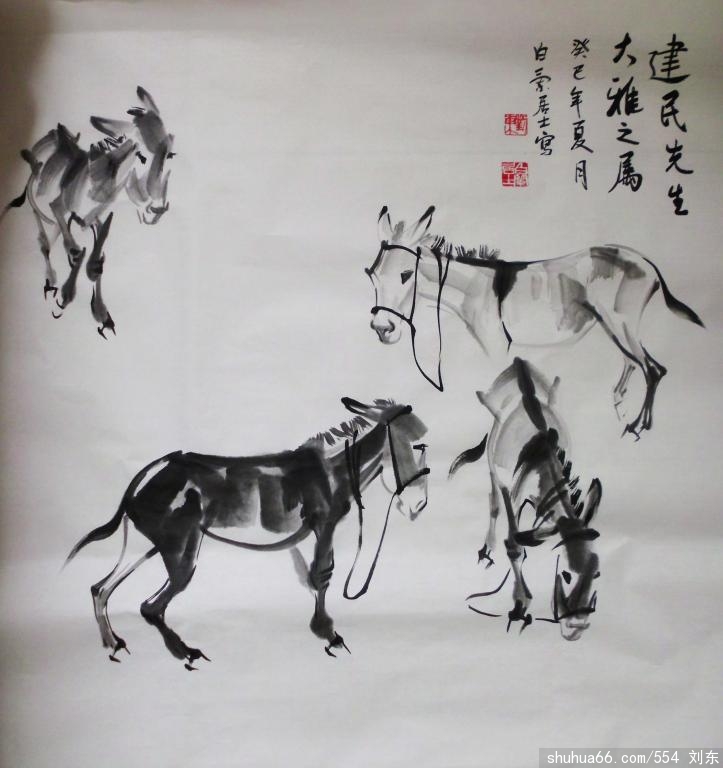 建民先生
大雅之属
癸巳年夏月
白蒙居士写
shuhua66.com/554 刘东